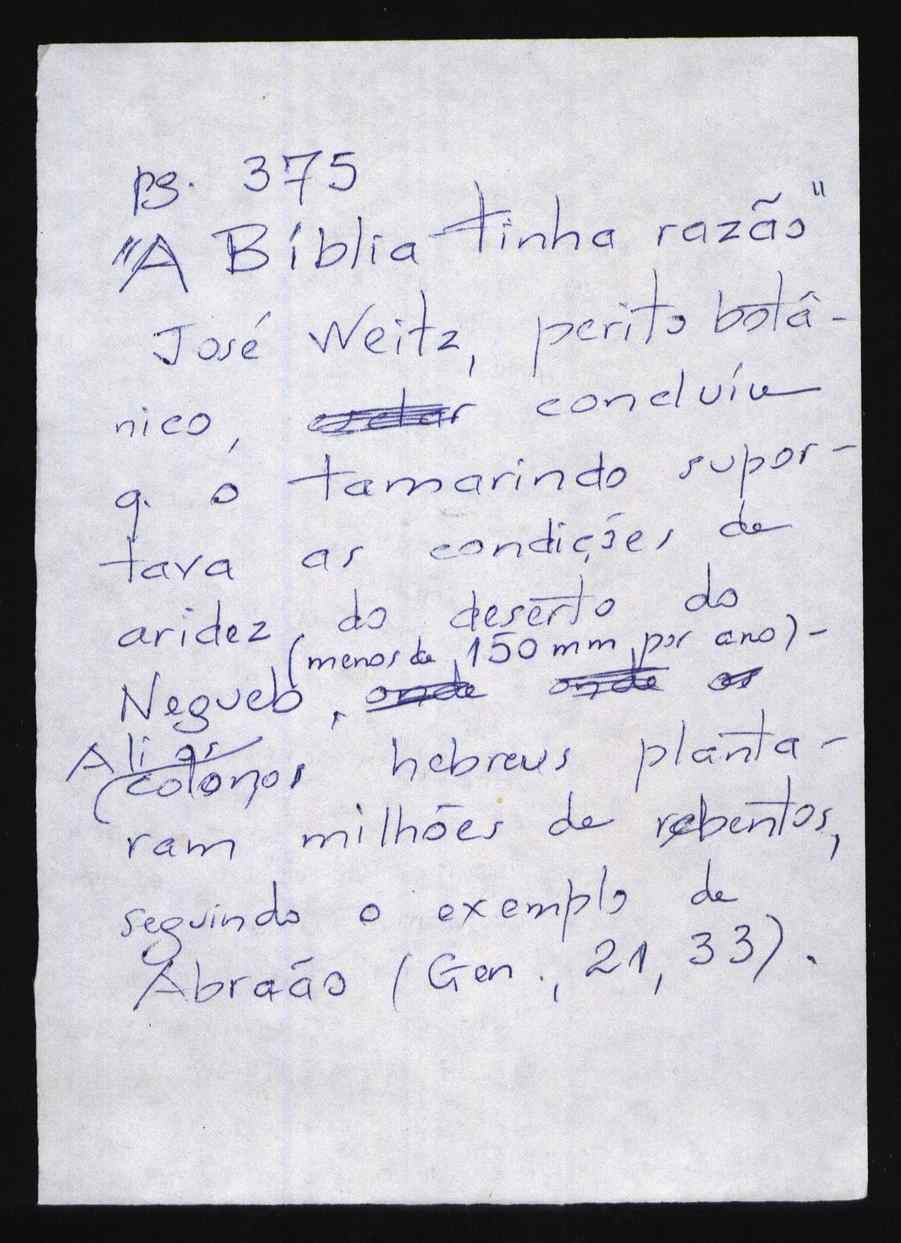 pg. 375
"A Bíblia tinha razão"
José Weitz, perito botâ-
nico, concluíu
q. o tamarindo supor-
tava as condições de
aridez do deserto do
(menos de 150 mm por ano)-
Negueb, onde onde os
Ali os
colonos hebreus planta-
ram milhões de rebentos,
seguindo o exemplo de
Abraão (Gen., 21, 33).